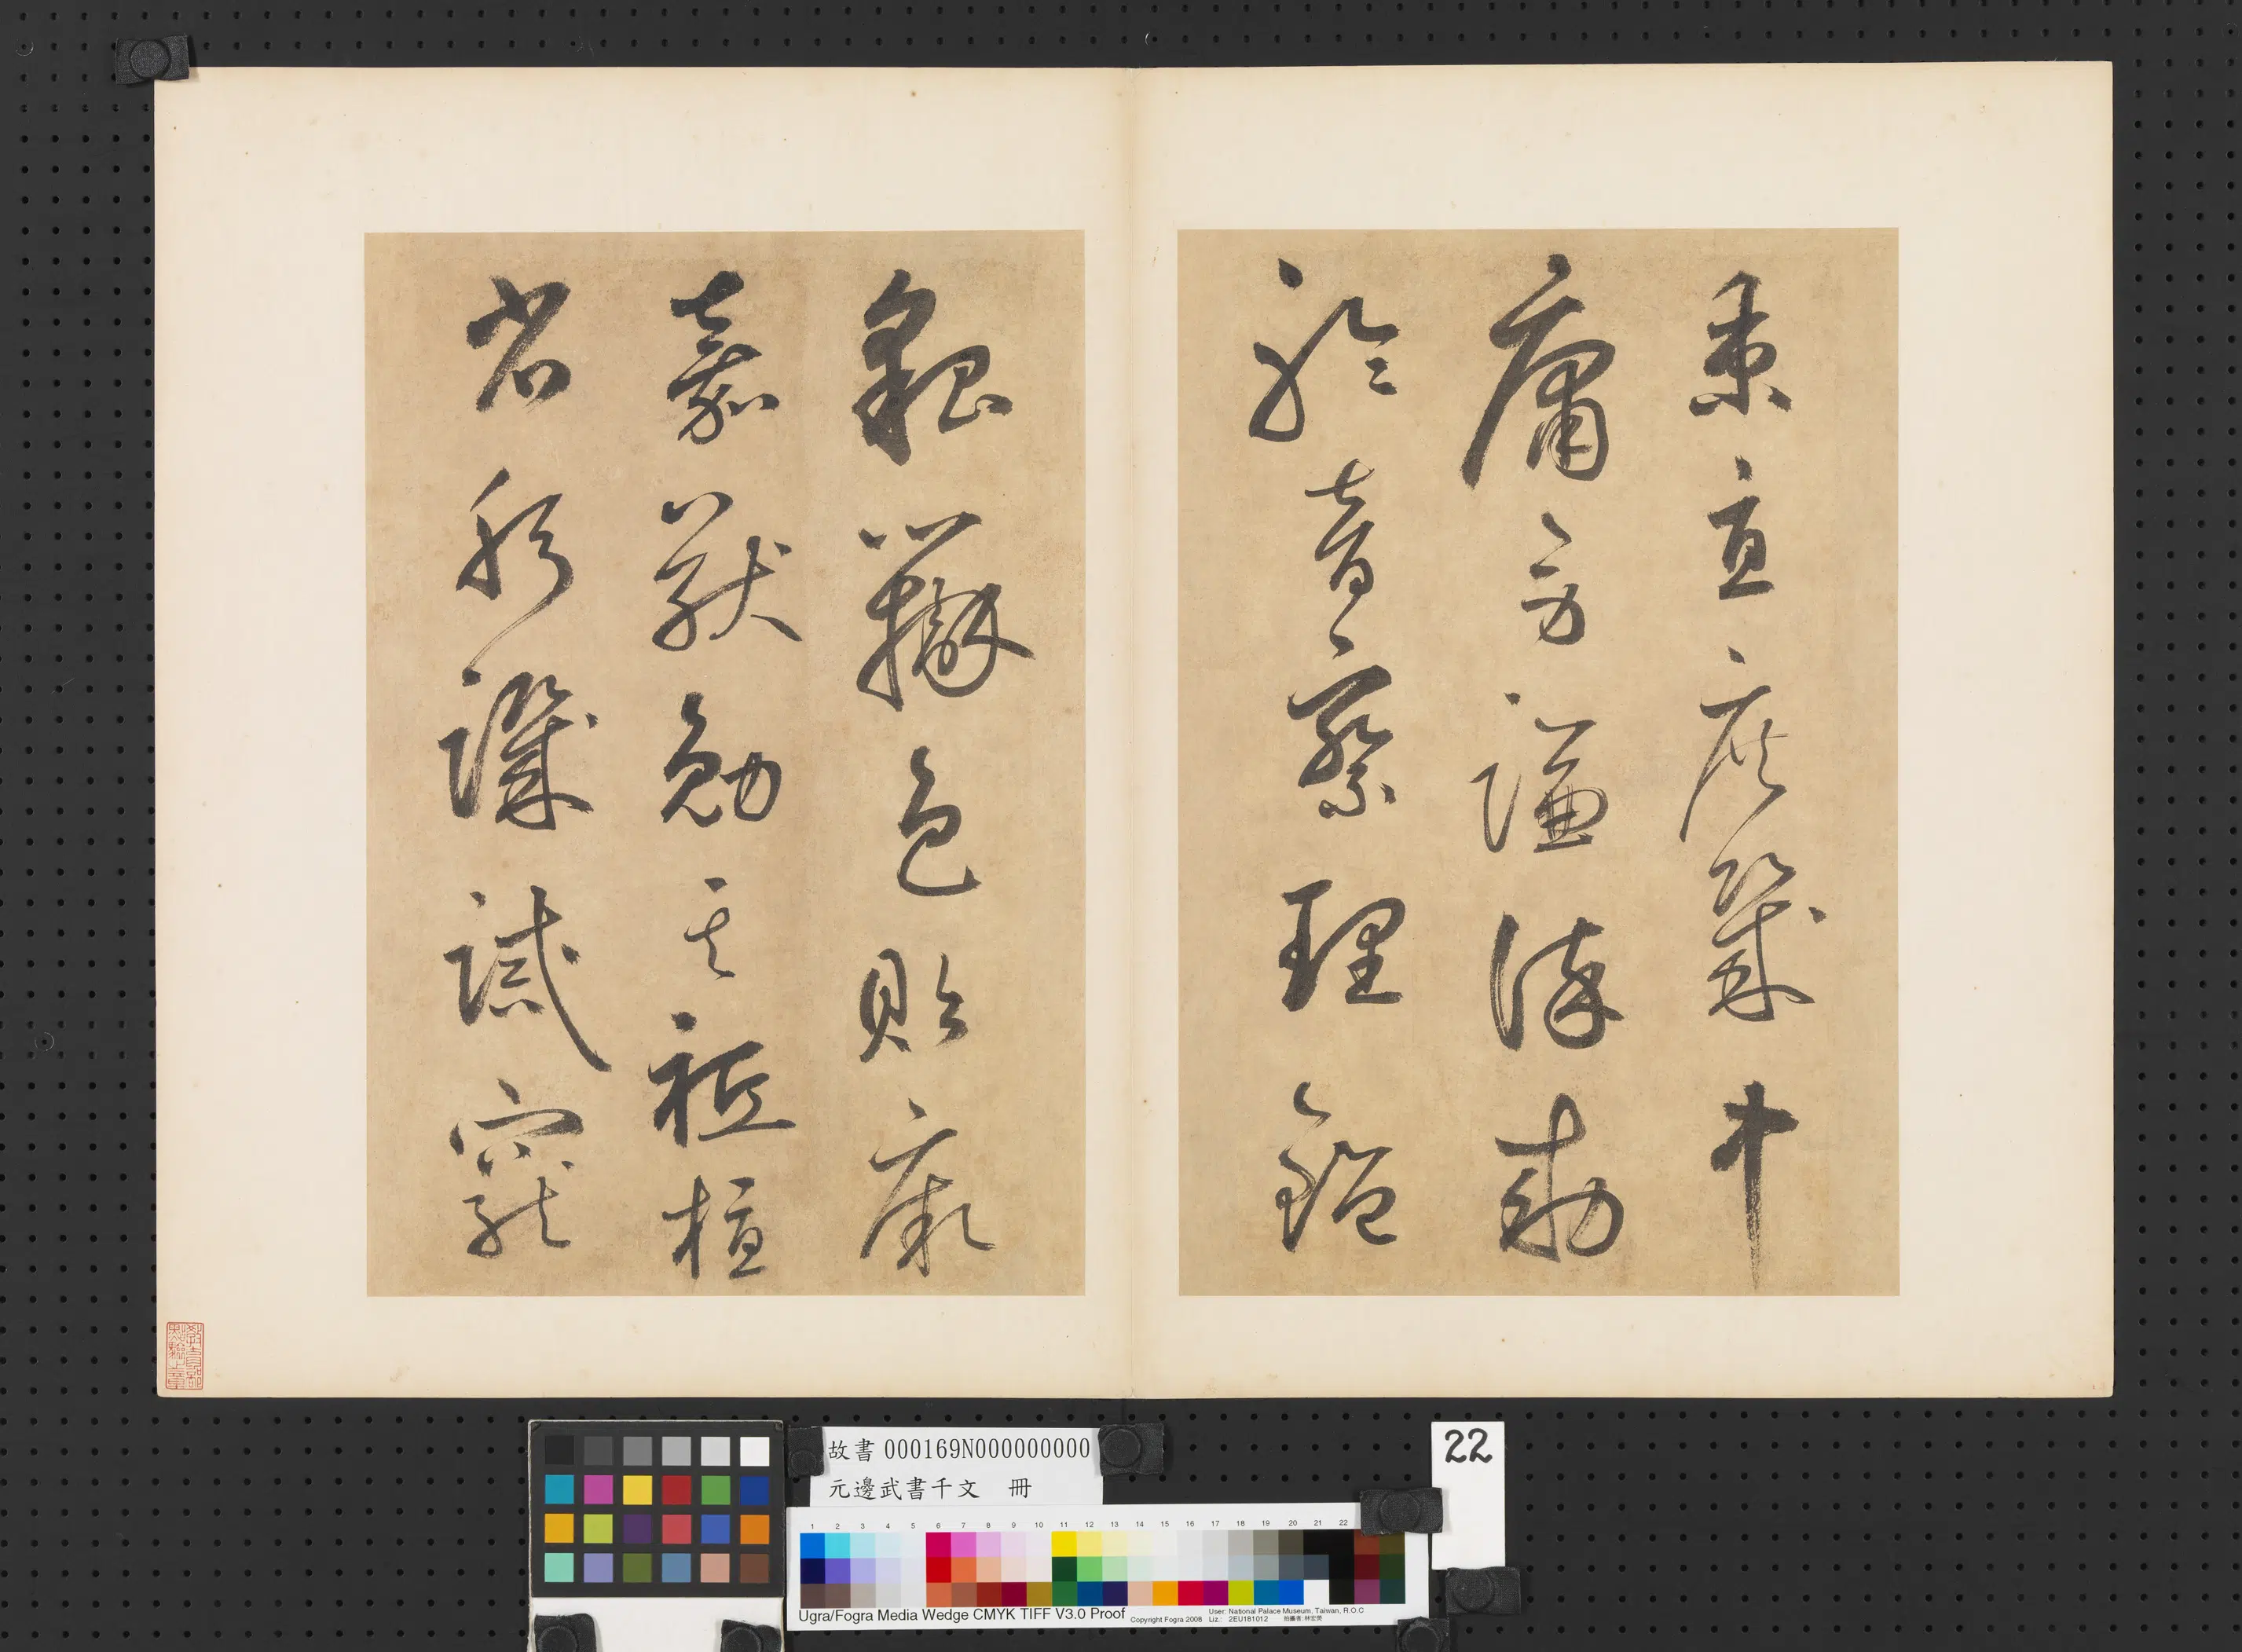 秉直庶幾中
庸勞謙謹勑
聆音察理鑑
貌辯色貽厥
嘉猷勉其祗植
省躬譏誡寵
教育部點驗之章
故書 000169N000000000
元邊武書千文 冊
22
1 2 3 4 5 6 7 8 9 10 11 12 13 14 15 16 17 18 19 20 21 22
Ugra/Fogra Media Wedge CMYK TIFF V3.0 Proof
Copyright Fogra 2008
User: National Palace Museum, Taiwan, R.O.C
Liz.: 2EU181012